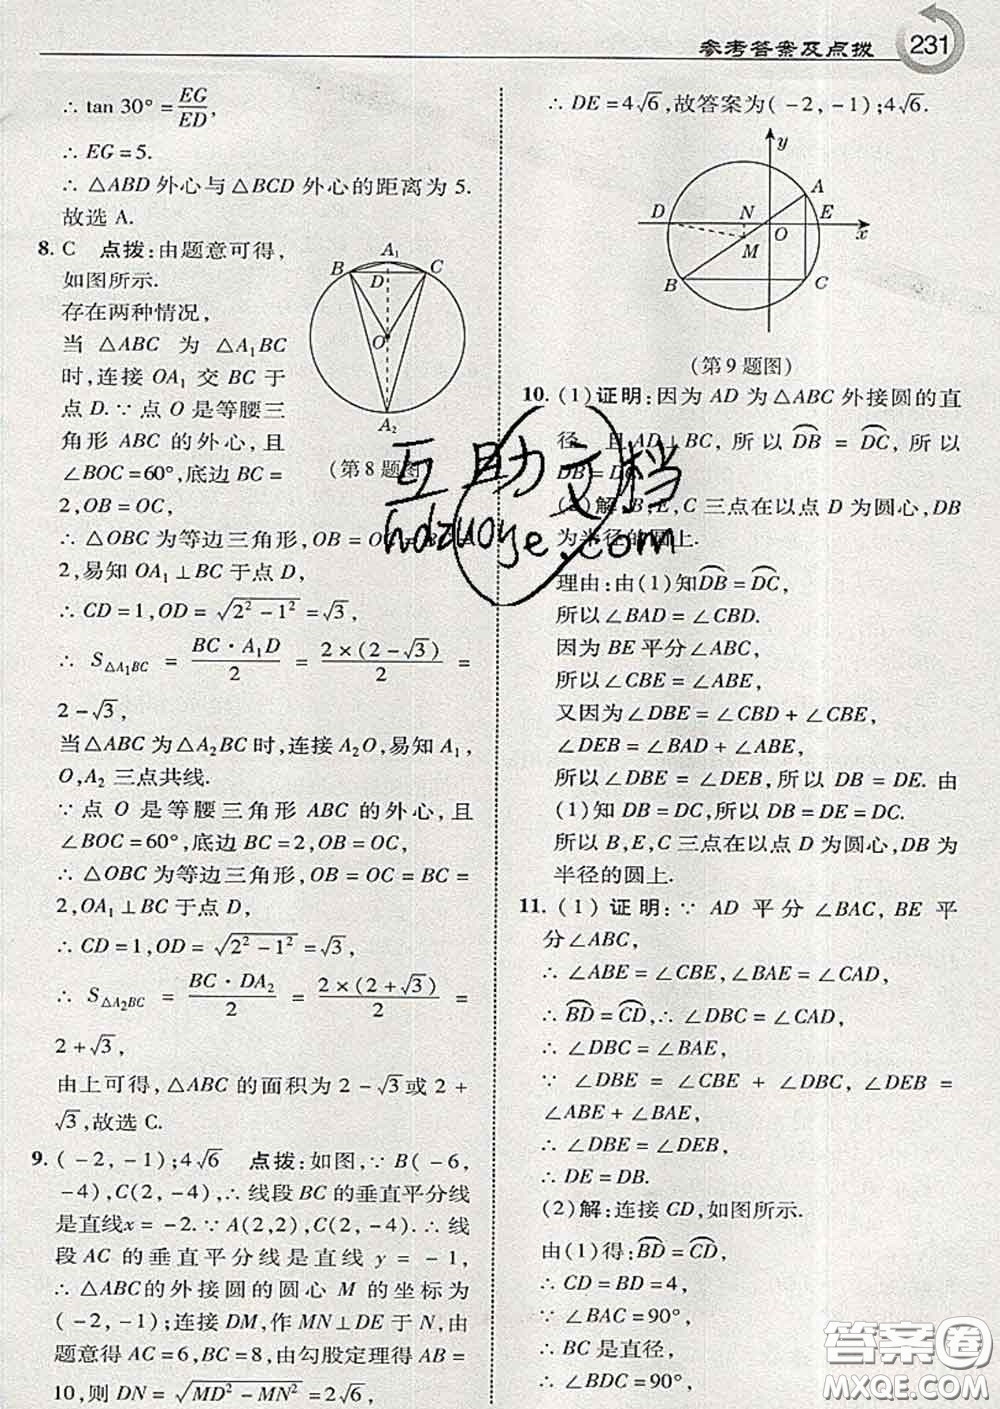 参考答案及点拨 231
∴ tan 30° = EG/ED,
∴ EG = 5.
∴ △ABD 外心与△BCD 外心的距离为 5.
故选 A.
8. C 点拨:由题意可得,
如图所示.
存在两种情况,
当 △ABC 为 △A₁BC
时,连接 OA₁ 交 BC 于
点 D.∵点 O 是等腰三
角形 ABC 的外心,且
∠BOC=60°,底边 BC =
2,OB = OC,
A₁
B
D
C
O
A₂
(第 8 题图)
∴ △OBC 为等边三角形,OB = OC = BC =
2,易知 OA₁⊥BC 于点 D,
∴ CD = 1,OD = √(2² − 1²) = √3,
∴ S△A₁BC = BC · A₁D / 2 = 2 × (2 − √3) / 2 =
2 − √3,
当△ABC 为△A₂BC 时,连接 A₂O,易知 A₁,
O,A₂ 三点共线.
∵ 点 O 是等腰三角形 ABC 的外心,且
∠BOC = 60°,底边 BC = 2,OB = OC,
∴ △OBC 为等边三角形,OB = OC = BC =
2,OA₁⊥BC 于点 D,
∴ CD = 1,OD = √(2² − 1²) = √3,
∴ S△A₂BC = BC · DA₂ / 2 = 2 × (2 + √3) / 2 =
2 + √3,
由上可得,△ABC 的面积为 2 − √3或 2 +
√3,故选 C.
9. (−2, −1);4√6 点拨:如图,∵ B(−6,
−4),C(2, −4),∴ 线段 BC 的垂直平分线
是直线x = −2.∵ A(2,2),C(2, −4).∴ 线
段 AC 的垂直平分线是直线 y = −1,
∴ △ABC的外接圆的圆心 M 的坐标为
(−2, −1);连接 DM,作 MN⊥DE 于 N,由
题意得 AC = 6,BC = 8,由勾股定理得 AB =
10,则 DN = √(MD² − MN²) = 2√6,
∴ DE = 4√6,故答案为(−2, −1);4√6.
y
A
D
N
E
O
x
M
B
C
(第 9 题图)
10. (1)证明:因为 AD 为△ABC 外接圆的直
径, 且 AD⊥BC, 所以 DB = DC, 所以
DB = DC.
(2)解:B,E,C 三点在以点 D 为圆心,DB
为半径的圆上.
理由:由(1)知DB = DC,
所以∠BAD = ∠CBD.
因为 BE 平分∠ABC,
所以∠CBE = ∠ABE,
又因为∠DBE = ∠CBD + ∠CBE,
∠DEB = ∠BAD + ∠ABE,
所以∠DBE = ∠DEB,所以 DB = DE. 由
(1)知 DB = DC,所以 DB = DE = DC.
所以 B,E,C 三点在以点 D 为圆心,DB 为
半径的圆上.
11. (1) 证明:∵ AD 平分∠BAC, BE 平
分∠ABC,
∴ ∠ABE = ∠CBE,∠BAE = ∠CAD,
∴ BD = CD,∴ ∠DBC = ∠CAD,
∴ ∠DBC = ∠BAE,
∵ ∠DBE = ∠CBE + ∠DBC, ∠DEB =
∠ABE + ∠BAE,
∴ ∠DBE = ∠DEB,
∴ DE = DB.
(2)解:连接 CD,如图所示.
由(1)得:BD = CD,
∴ CD = BD = 4,
∵ ∠BAC = 90°,
∴ BC 是直径,
∴ ∠BDC = 90°,
互助文档
hdzuoye.com
答案圈
MXQE.COM